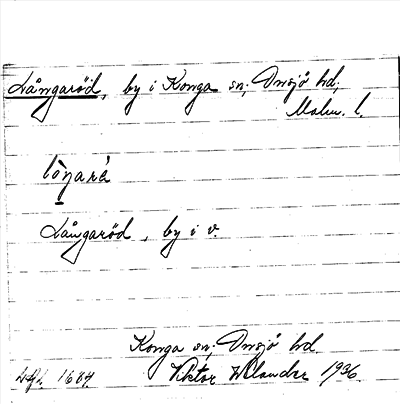 Långaröd, by i Konga sn; Onsjö hd;
Malm. l.
Långaröd, by i v.
Konga sn; Onsjö hd
1684 Viktor Wilander 1936.